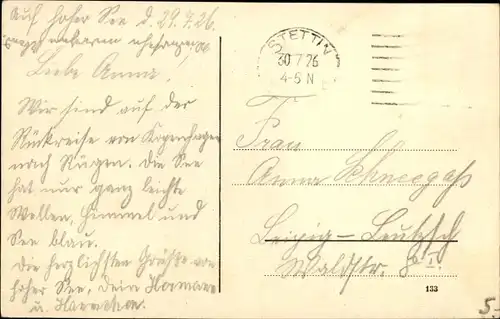 Auf hoher See d. 29.7.26.
Liebe Anna!
Wir sind auf der
Rückreise von Kopenhagen
nach Rügen. Die See
hat nur ganz leichte
Wellen, Himmel und
See blau.
Die herzlichsten Grüße von
hoher See, Dein
u.
STETTIN
30.7.26
4-5 N
Frau
Anna Schneegaß
Leipzig-Leutzsch
Waldstr. 8 II.
133
5.-